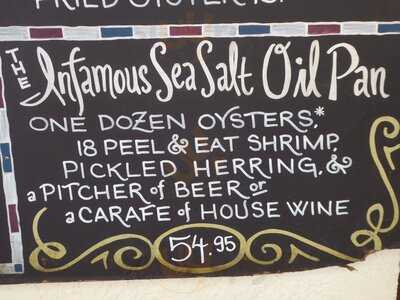 FRIED OYSTER 15.
THE Infamous Sea Salt Oil Pan
ONE DOZEN OYSTERS,*
18 PEEL & EAT SHRIMP,
PICKLED HERRING, &
a PITCHER of BEER or
a CARAFE of HOUSE WINE
54.95